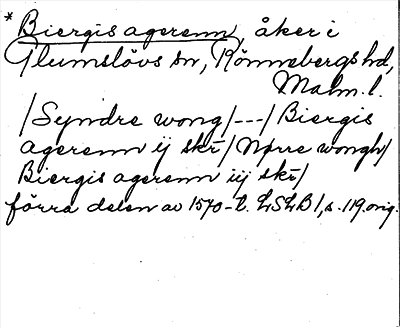 *Biergis agerenn, åker i
Glumslövs sn, Rönnebergs hd,
Malm. l.
/Syndre wong/---/Biergis
agerenn ij skr/Nørre wongh/
Biergis agerenn iij skr/
förra delen av 1570-t. LSLB 1, s. 119. orig.